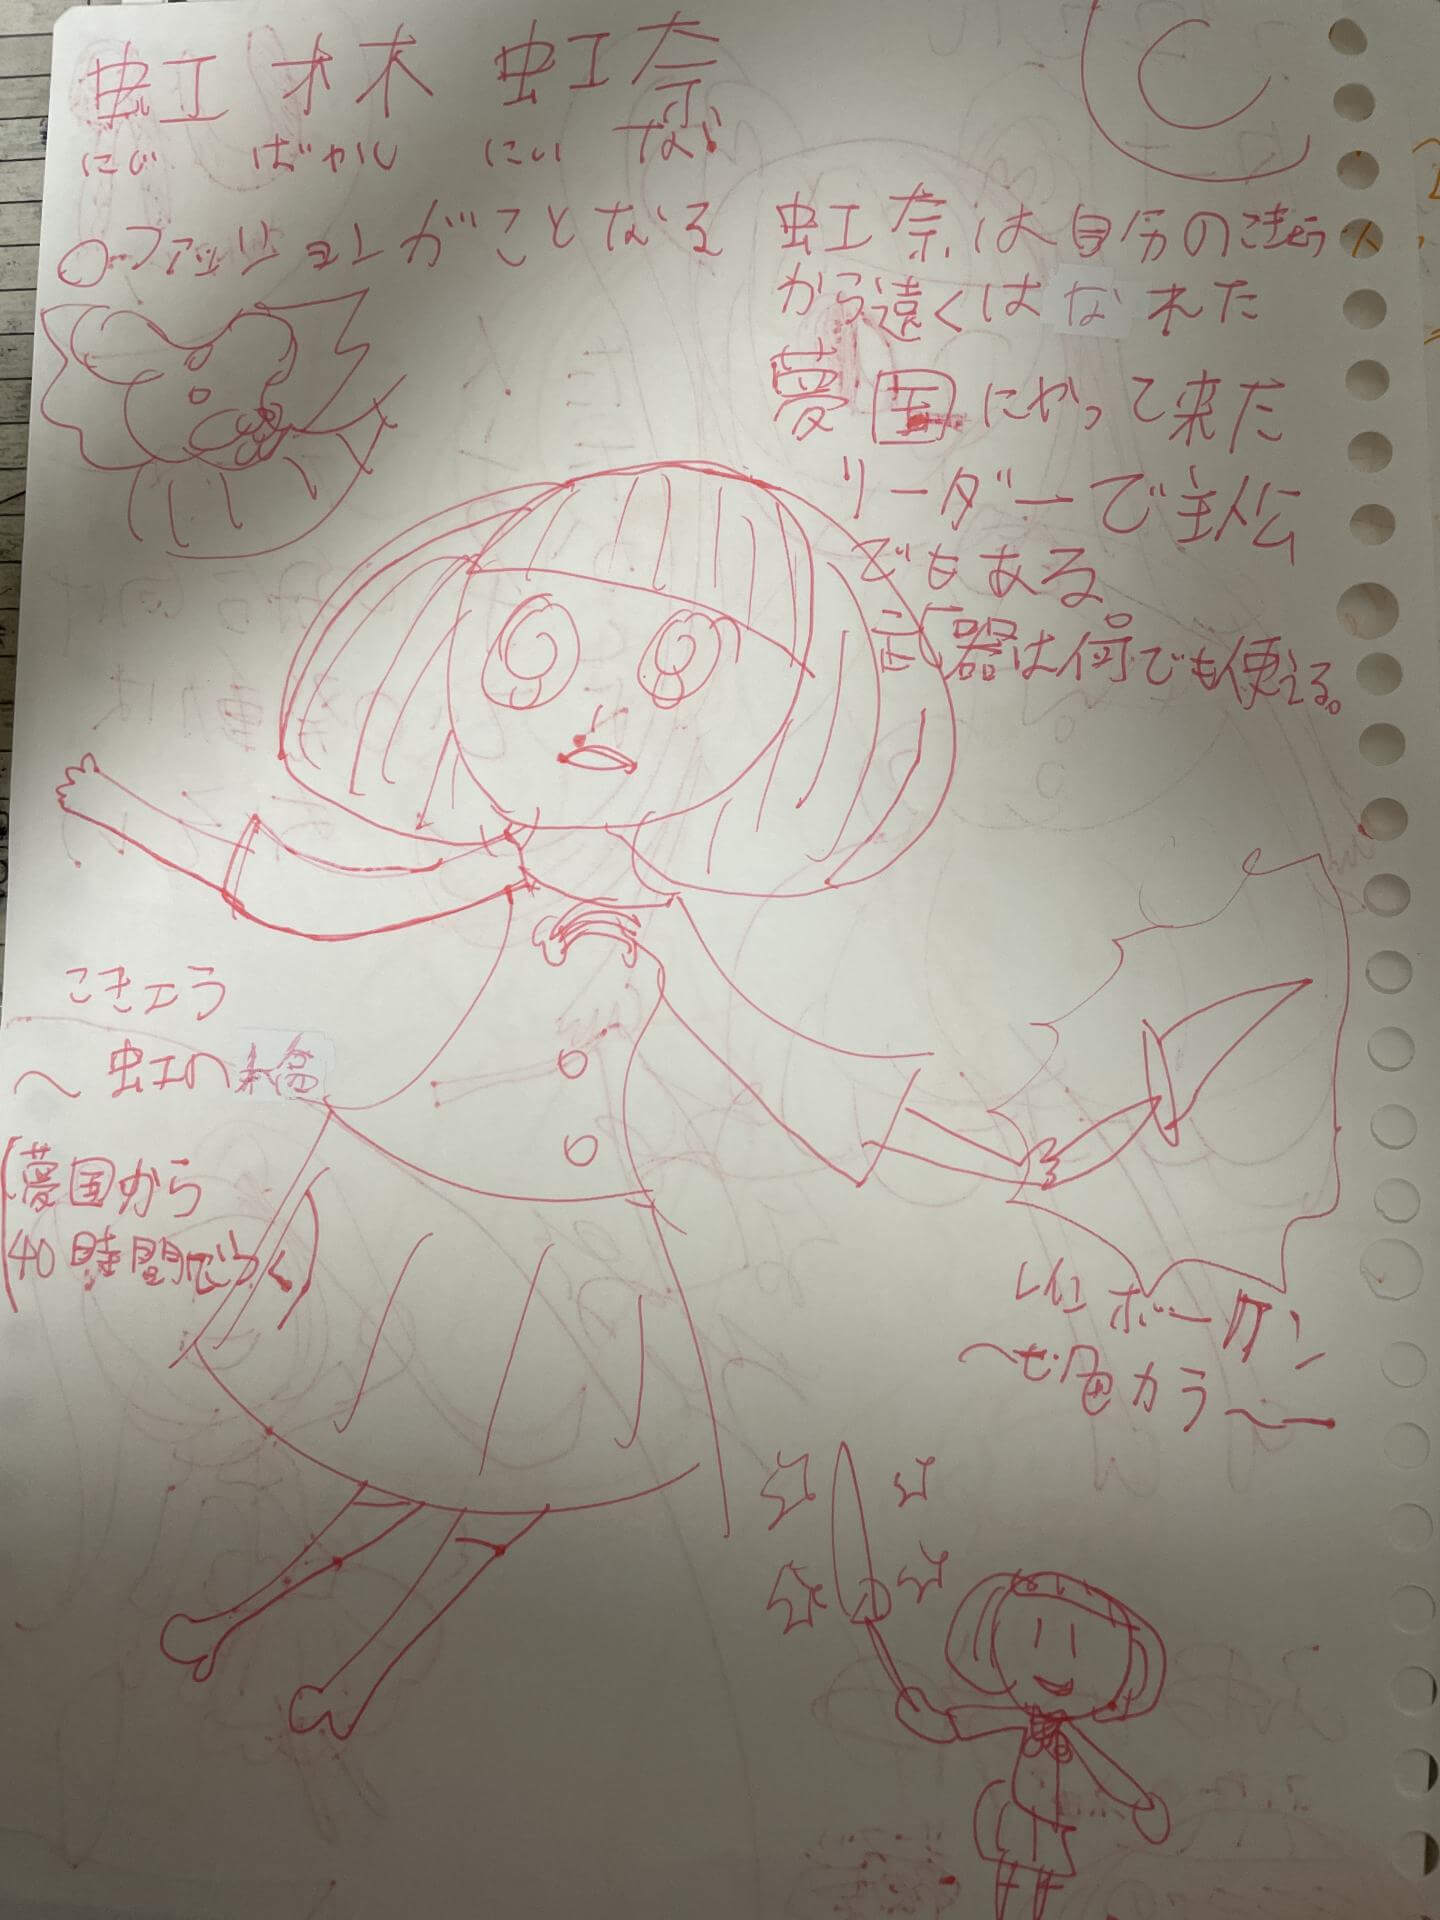 虹 才木 虹奈
にじ ばやし にい な
○ファッションがことなる
虹奈は自分のこきょう
から遠くはなれた
夢国にやって来た
リーダーで主人公
でもある。
武器は何でも使える。
こきょう
～虹の
(夢国から
40時間でつく)
レインボーケン
～七色カラー